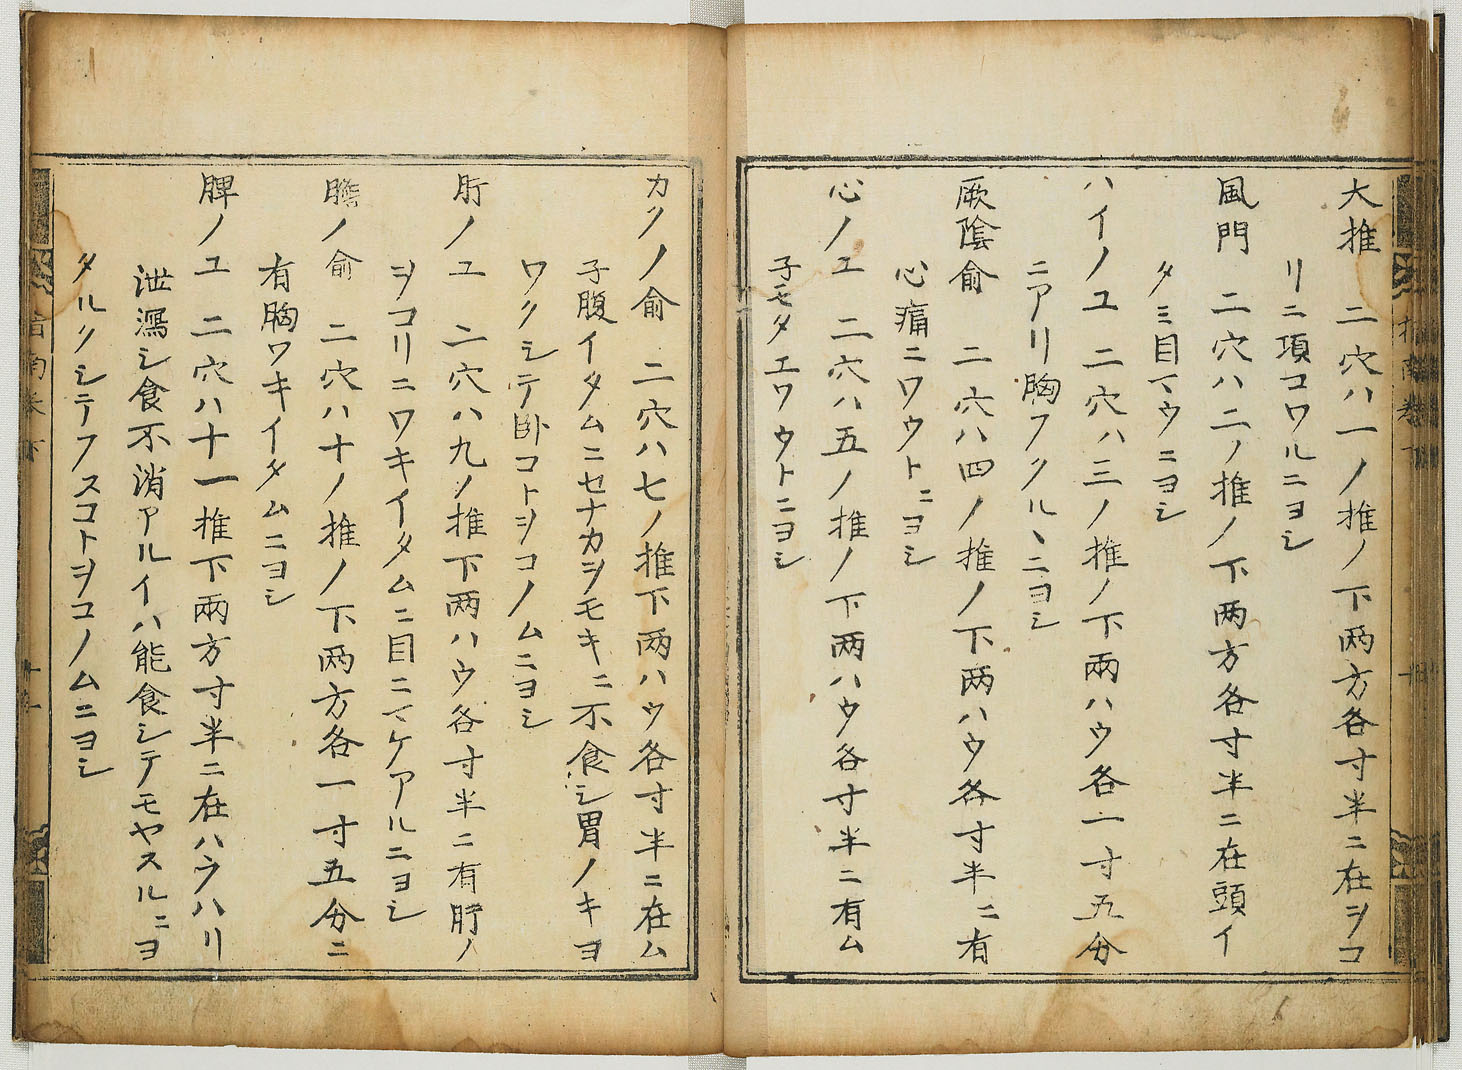 大推　二穴ハ一ノ推ノ下两方各寸半ニ在ヲコ
リニ項コワルニヨシ
風門　二穴ハ二ノ推ノ下两方各寸半ニ在頭イ
タミ目マウニヨシ
ハイノユ　二穴ハ三ノ推ノ下兩ハウ各一寸五分
ニアリ胸フクルヽニヨシ
厥陰俞　二穴ハ四ノ推ノ下两ハウ各寸半ニ有
心痛ニワウトニヨシ
心ノユ　二穴ハ五ノ推ノ下两ハウ各寸半ニ有ム
子モタエワウトニヨシ
カクノ俞　二穴ハ七ノ推下两ハウ各寸半ニ在ム
子腹イタムニセナカヲモキニ不食シ胃ノキヨ
ワクシテ卧コトヲコノムニヨシ
肝ノユ　二穴ハ九ノ推下两ハウ各寸半ニ有肝ノ
ヲコリニワキイタムニ目ニマケアルニヨシ
膽ノ俞　二穴ハ十ノ推ノ下两方各一寸五分ニ
有胸ワキイタムニヨシ
脾ノユ　二穴ハ十一推下兩方寸半ニ在ハウハリ
泄瀉シ食不消アルイハ能食シテモヤスルニヨ
タルクシテフスコトヲコノムニヨシ
指南卷下